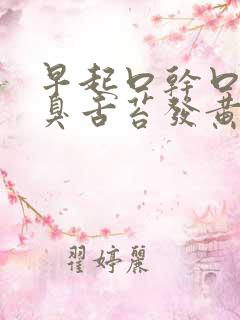 早起口幹口
臭舌苔發黃
翟婷麗